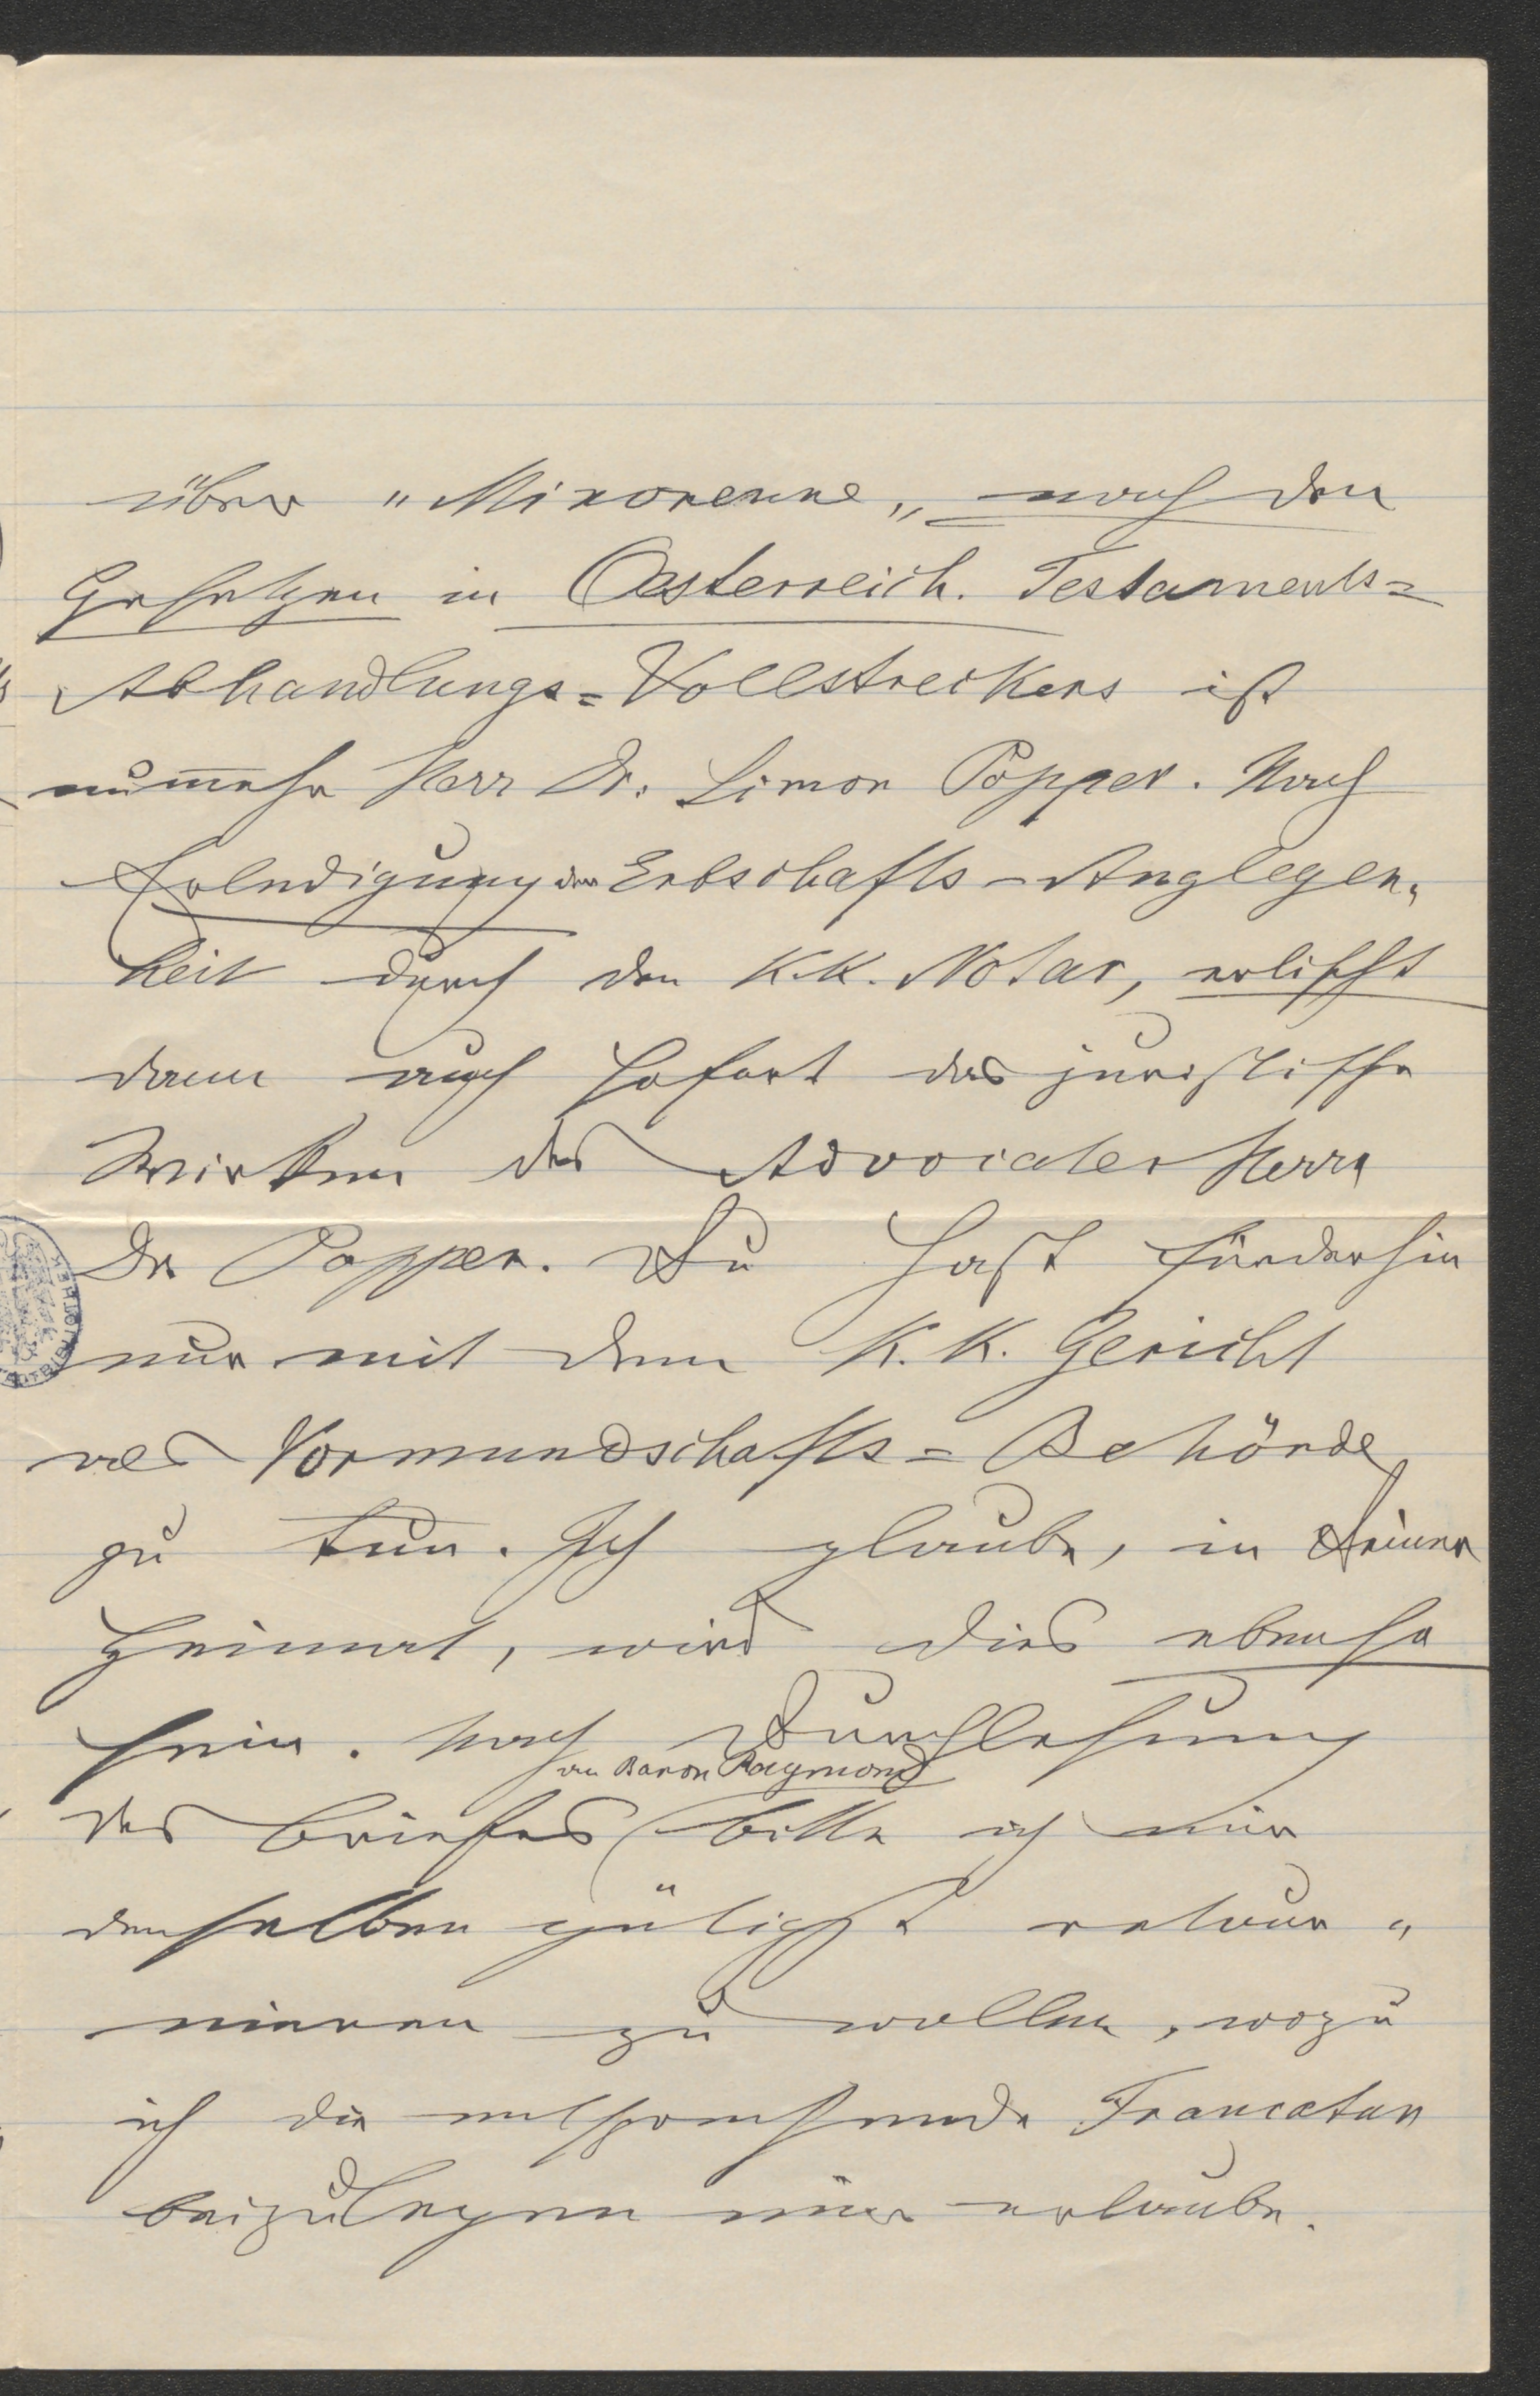 über "Minorenne" nach den
Gesetzen in Oesterreich. Testaments=
Abhandlungs=Vollstreckers ist
nun̅mehr Herr Dr. Simon Popper. Nach
Erledigung der Erbschafts-Anglegen„
heit durch den K.K. Notar, erlischt
dann auch sofort das juristische
Wirken des Advocaten Herrn
Dr Popper. Du hast fürderhin
nur mit dem K.K. Gericht
als Vormundschafts=Behörde
zu tun. Ich glaube, in Deiner
Heimat, wird dies ebenso
sein. Nach Durchlesung
an Baron Raymond
des Briefes bitte ich mir
denselben gütigst retour„
nieren zu wollen, wozu
ich die entsprechende Francatur
beizulegen mir erlaube.